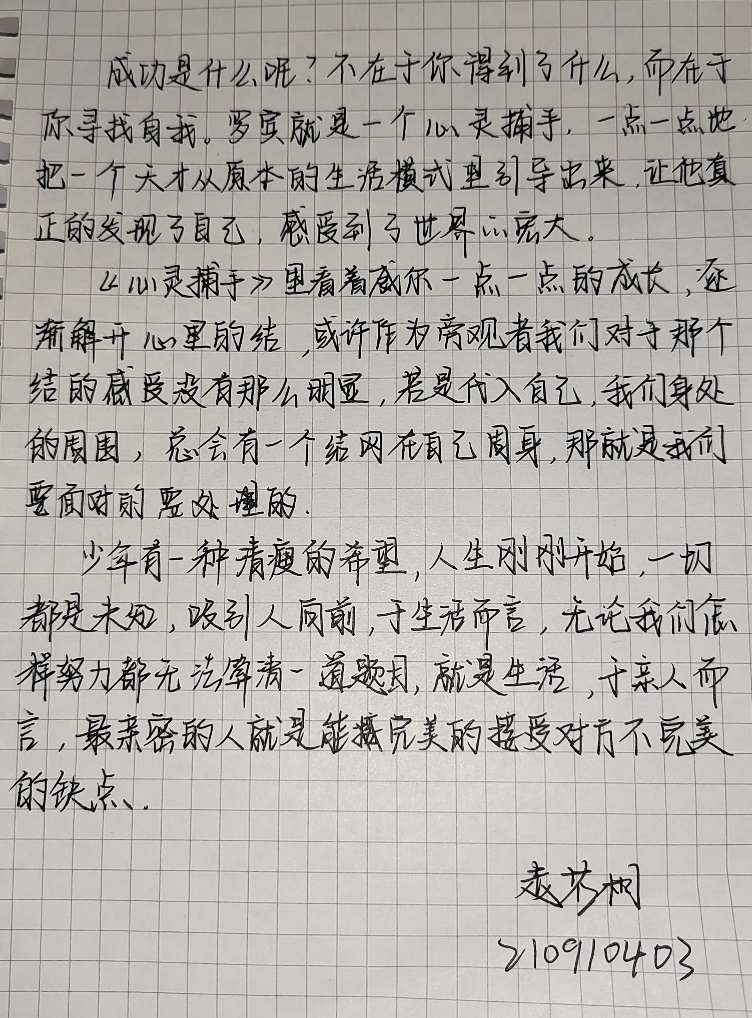 成功是什么呢？不在于你得到了什么，而在于
你寻找自我。罗宾就是一个心灵捕手，一点一点地
把一个天才从原本的生活模式里引导出来，让他真
正的发现了自己，感受到了世界的宏大。
《心灵捕手》里看着威尔一点一点的成长，逐
渐解开心里的结，或许作为旁观者我们对于那个
结的感受没有那么明显，若是代入自己，我们身处
的周围，总会有一个结网在自己周身，那就是我们
要面对的要处理的.
少年有一种清瘦的希望，人生刚刚开始，一切
都是未知，吸引人向前，于生活而言，无论我们怎
样努力都无法算清一道题目，就是生活，于亲人而
言，最亲密的人就是能完美的接受对方不完美
的缺点、.
210910403